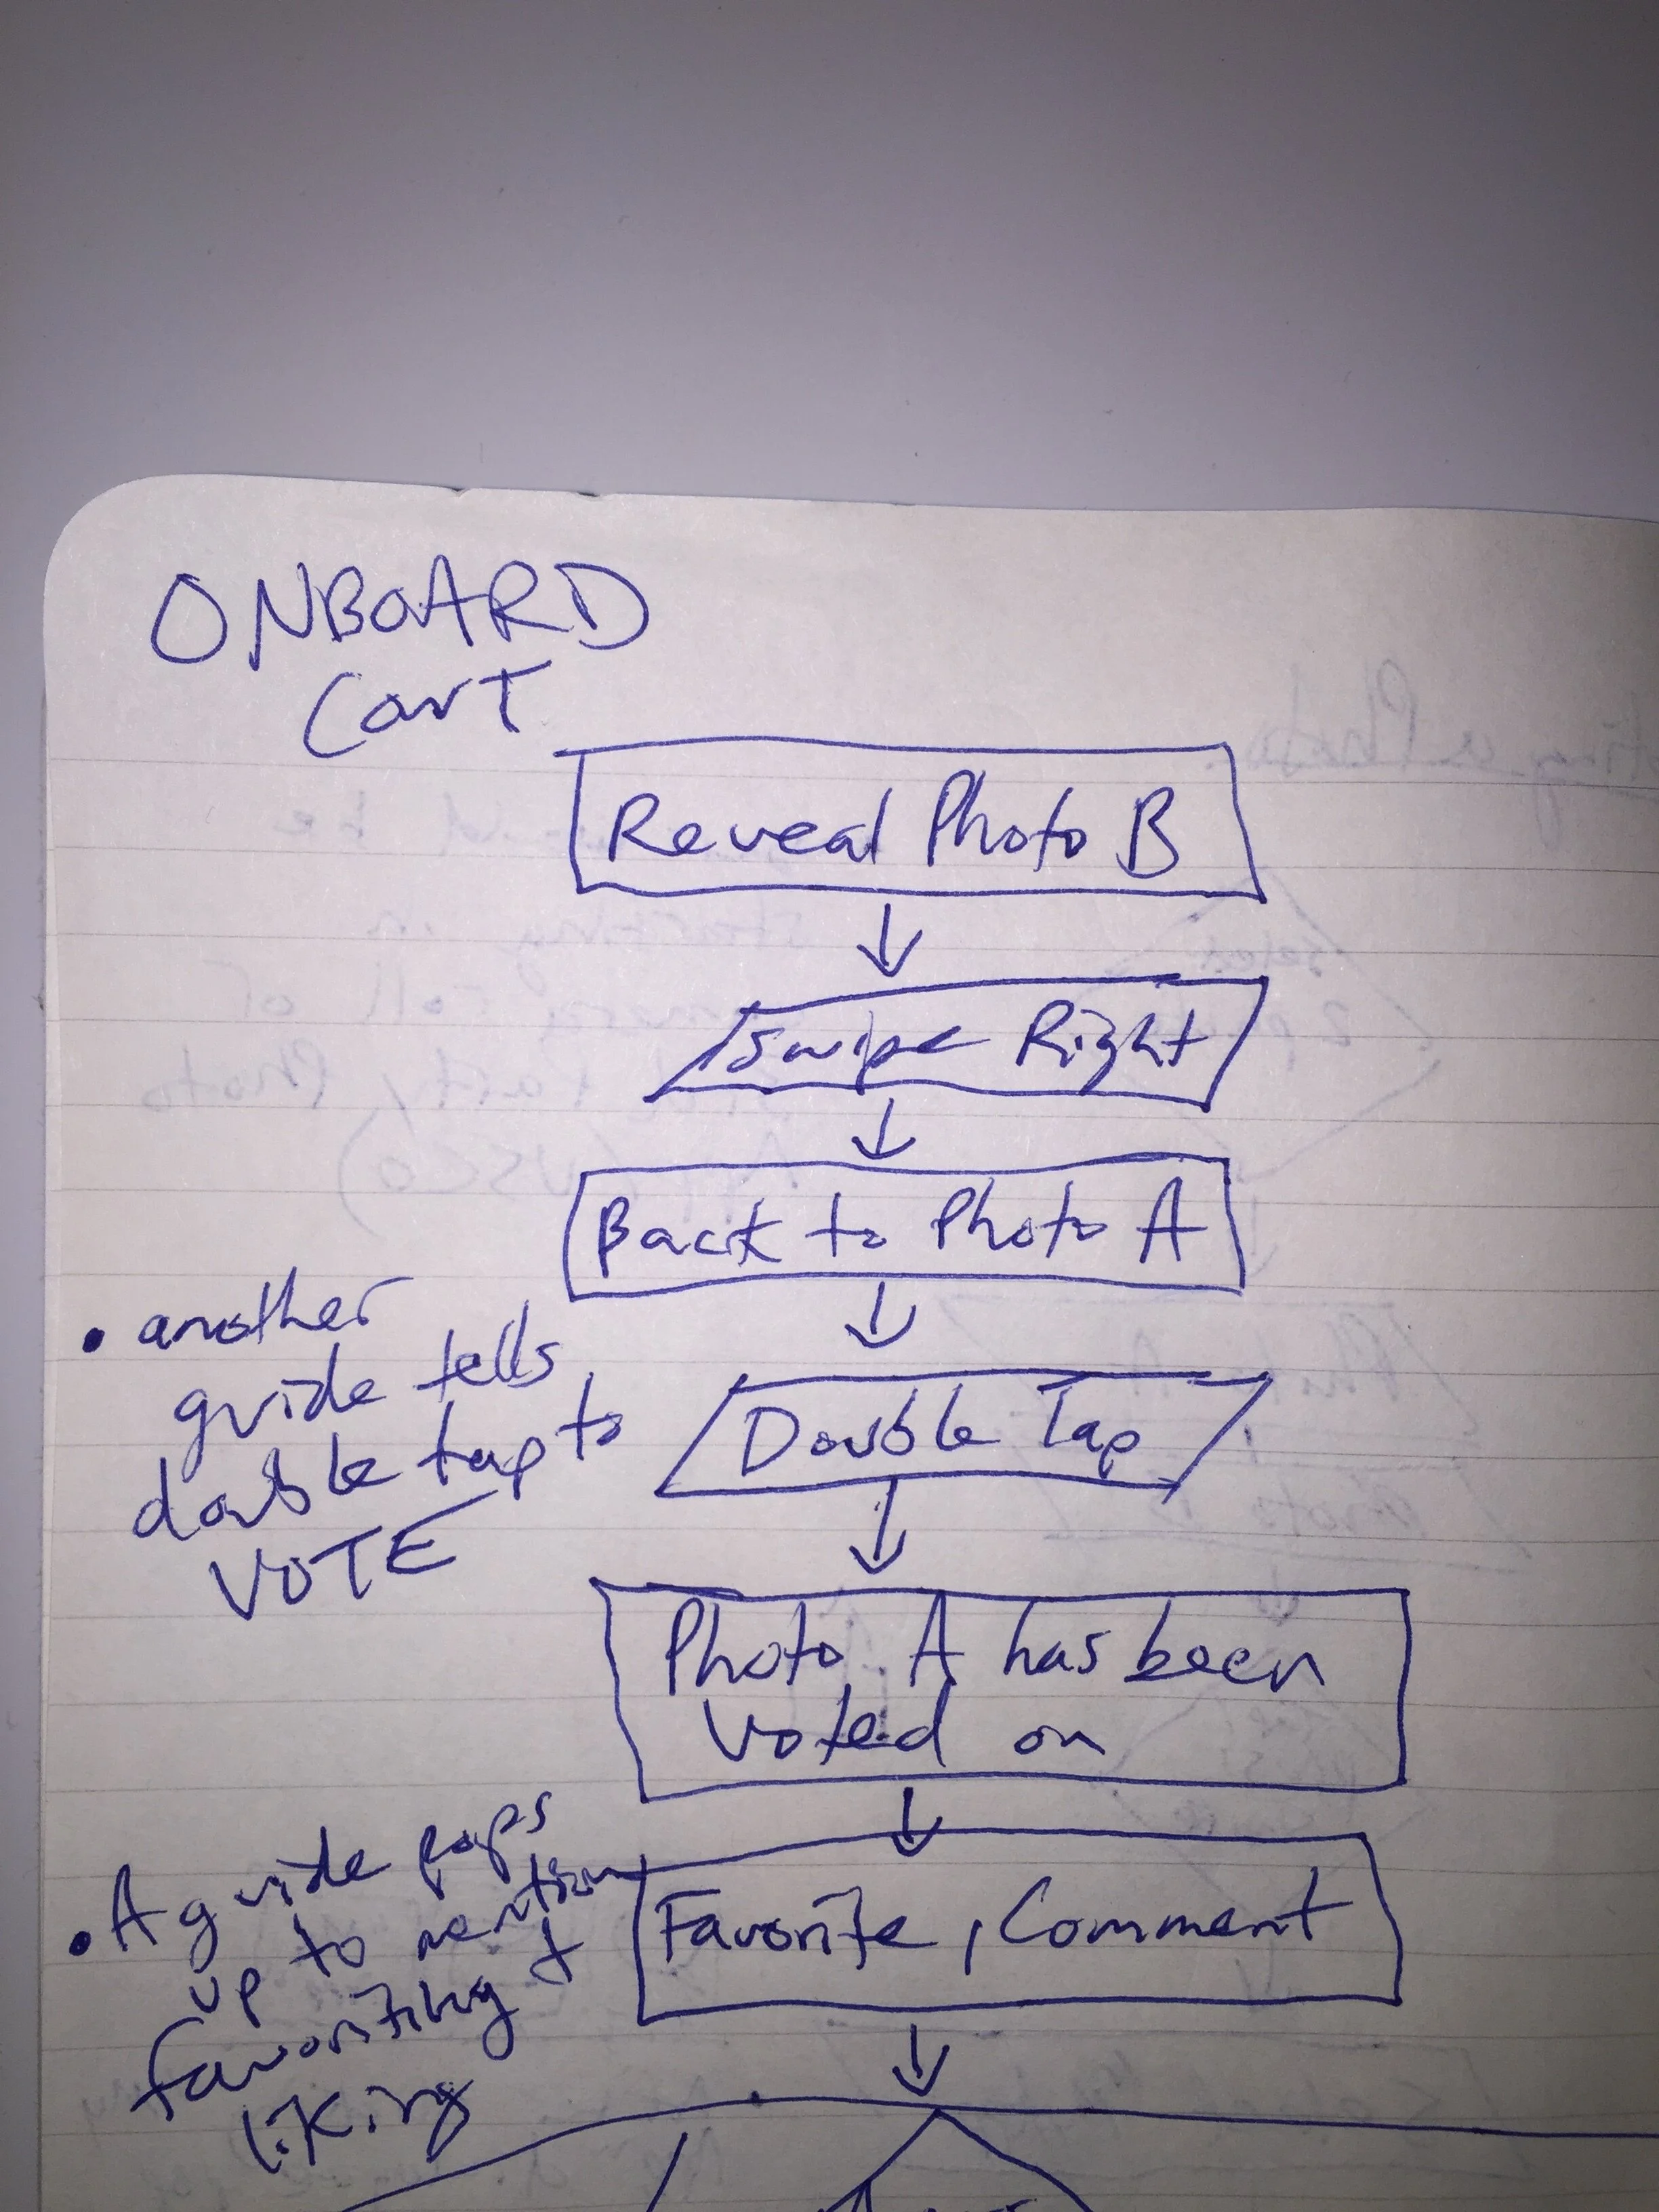 ONBOARD
Cont
Reveal Photo B
Swipe Right
Back to Photo A
• another
guide tells
double tap to
VOTE
Double Tap
Photo A has been
voted on
• A guide pops
up to mention
favoriting +
liking
Favorite, Comment